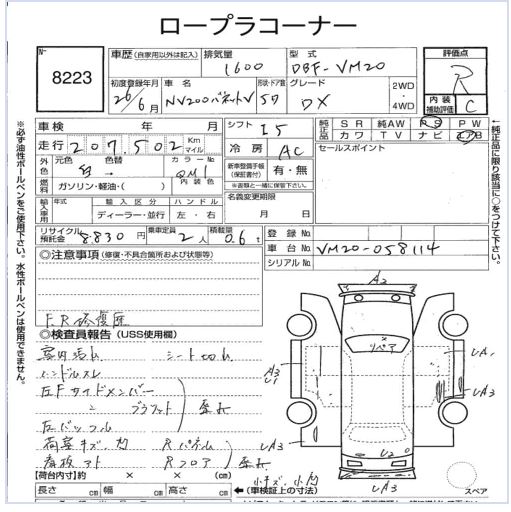 ロープラコーナー
No 8223
車歴 (自家用以外は記入) 排気量 1600 型式 DBF-VM20
評価点 R
内装補助評価 C
初度登録年月 26年6月 車名 NV200バネットV 形状・ドア数 5D グレード DX 2WD・4WD
車検 年 月 シフト I5
走行 207,502 Km マイル
冷房 AC
純正品 SR 純AW PS PW
カワ TV ナビ エアB
セールスポイント
外色 元色 白 色替 → カラーNo QM1
燃料 ガソリン・軽油・( ) 内装色
新車整備手帳(保証書付) 有・無
※書類と一緒に保管下さい。
輸入車用 年式 輸入区分 ハンドル
ディーラー・並行 左・右
名義変更期限 月 日
リサイクル預託金 8,830 円 乗車定員 2人 積載量 0.6t
登録No
車台No VM20-058114
シリアルNo
◎注意事項 (修復・不具合箇所および状態等)
F.R修復歴
◎検査員報告 (USS使用欄)
室内汚れ シート切れ
ハンドルスレ
左Fサイドメンバー
〃 ブラケット 歪み
左バッフル
荷室キズ 凹 Rパネル
看板アト Rフロア 歪み
小キズ、小凹
【荷台内寸】約 × × (cm)
長さ cm 幅 cm 高さ cm
←(車検証上の寸法)
A2
×
リペア
A3
U1
UA1
UA3
UA3
U2
UA3
スペア
※必ず油性ボールペンをご使用下さい。水性ボールペンは使用できません。
↑純正品に限り該当に○をつけて下さい。